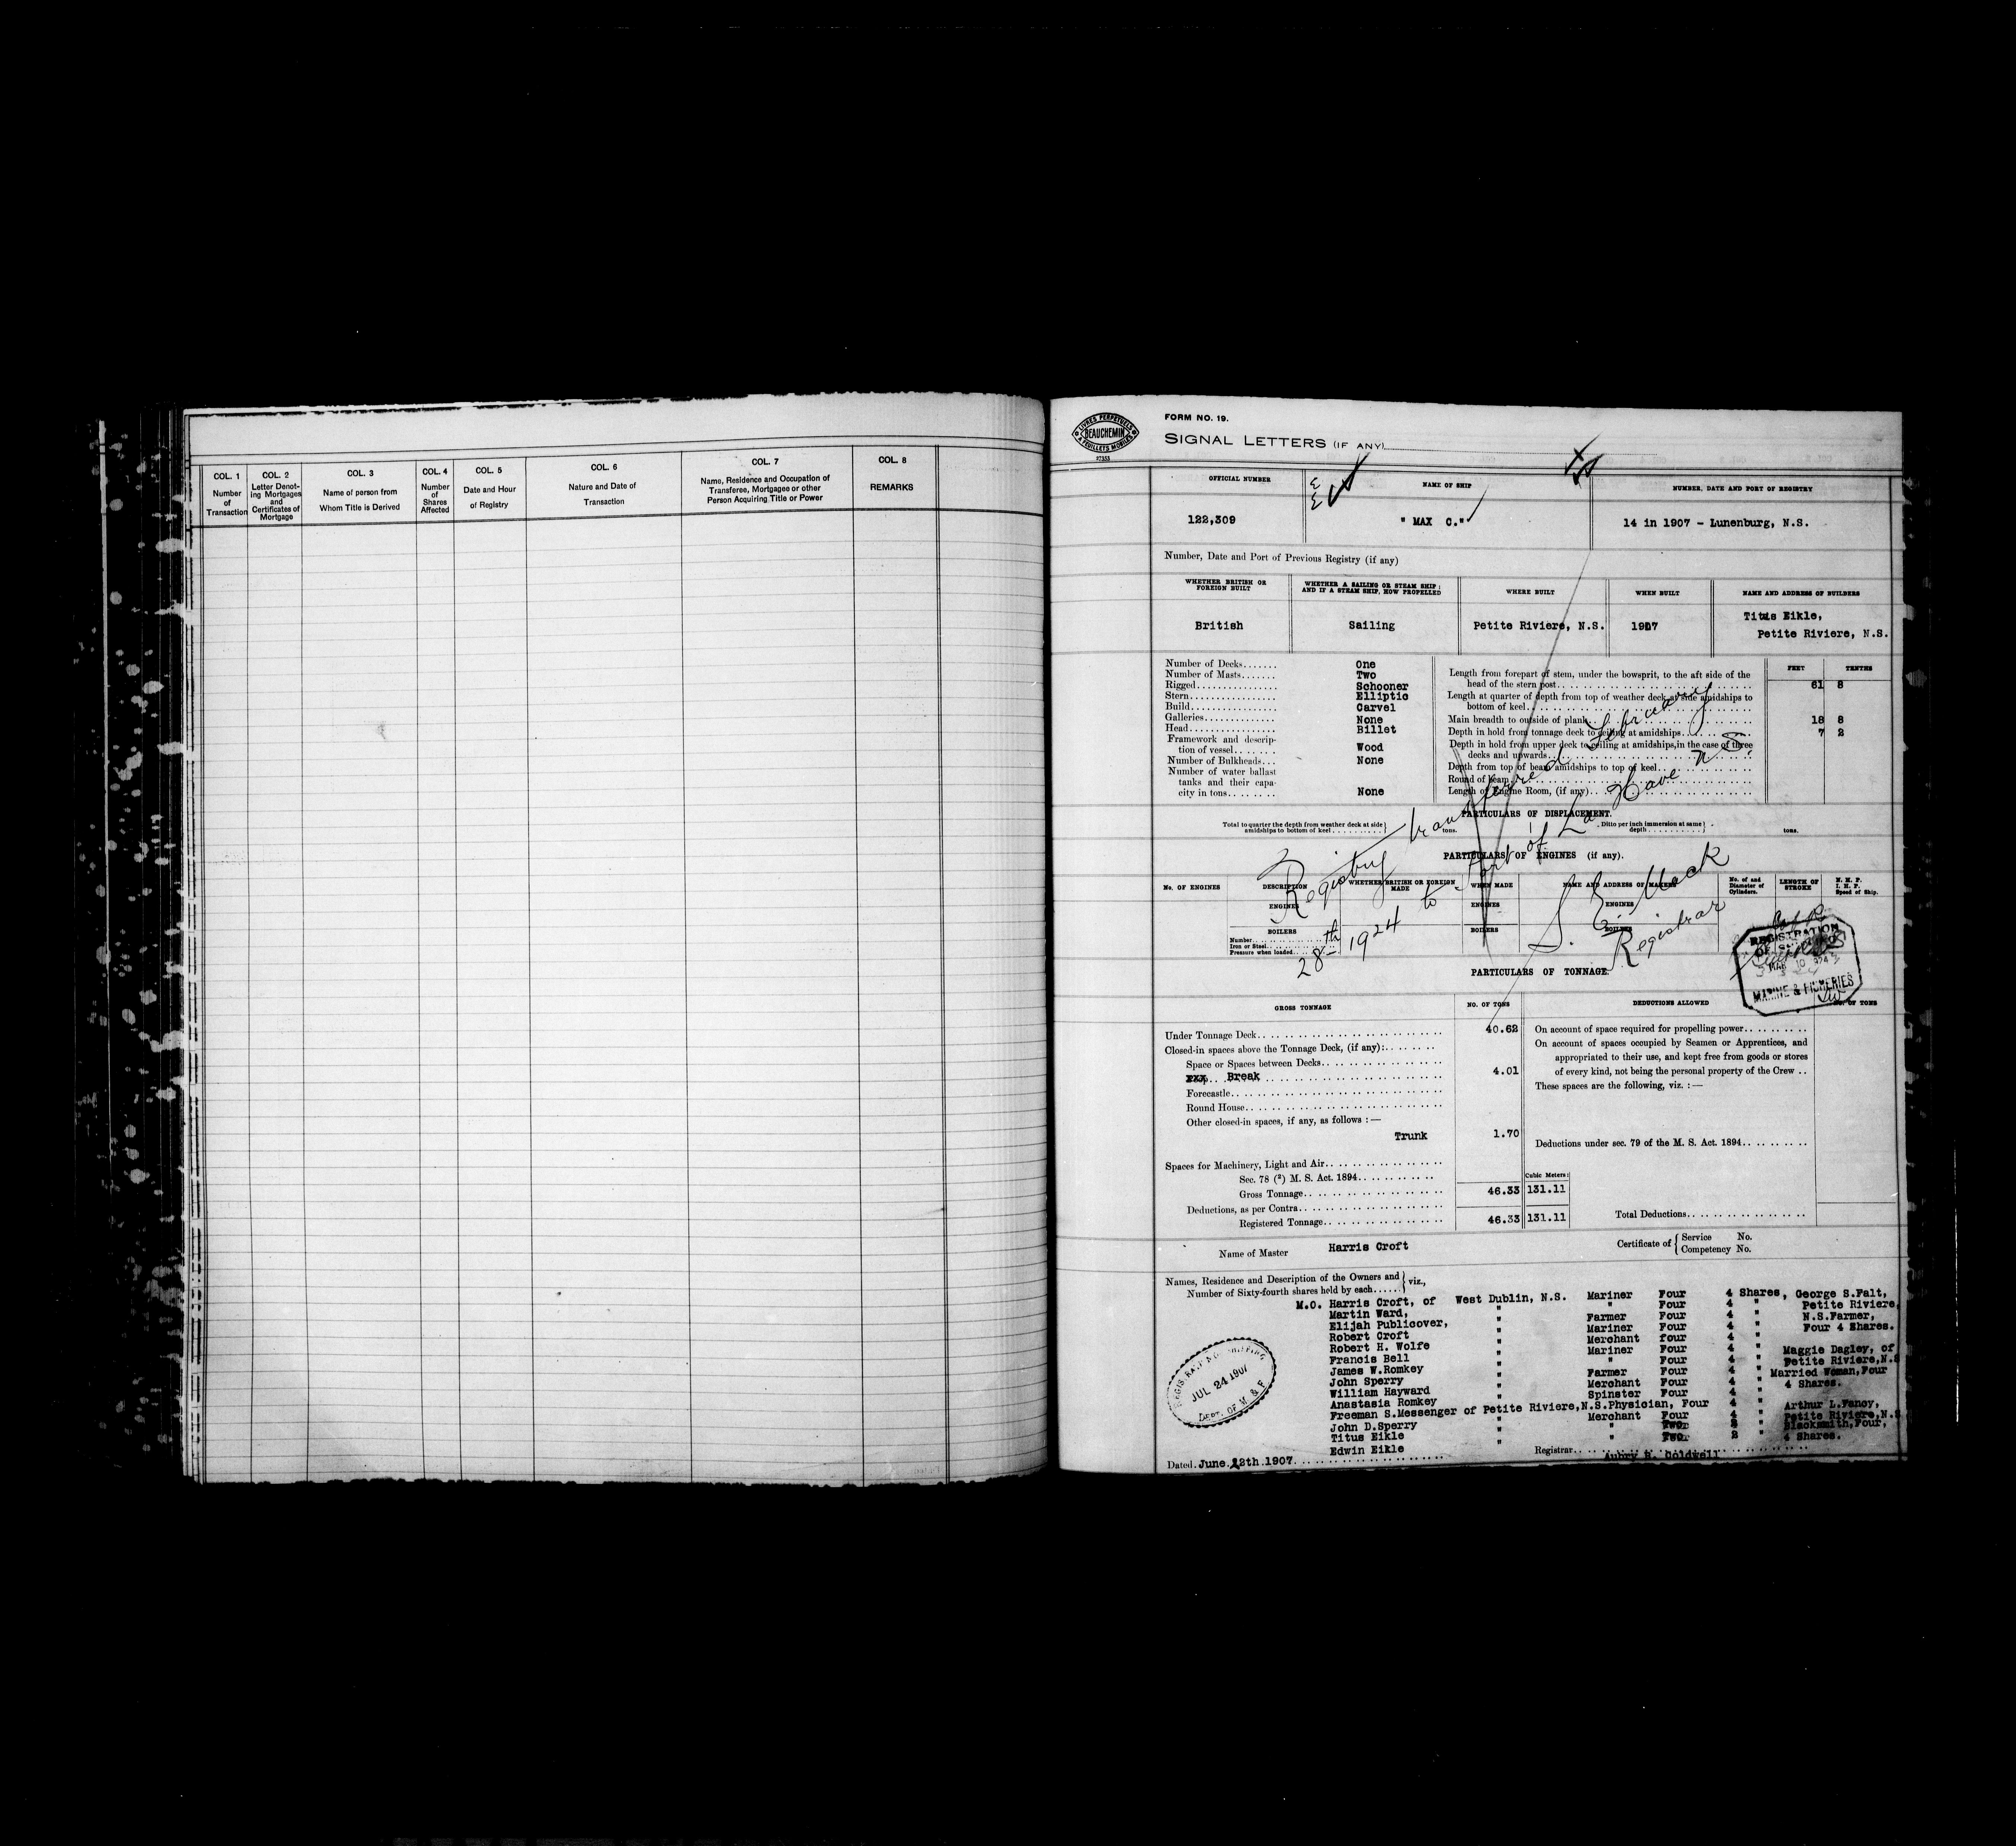 COL. 1
Number
of
Transaction
COL. 2
Letter Denot-
ing Mortgages
and
Certificates of
Mortgage
COL. 3
Name of person from
Whom Title is Derived
COL. 4
Number
of
Shares
Affected
COL. 5
Date and Hour
of Registry
COL. 6
Nature and Date of
Transaction
COL. 7
Name, Residence and Occupation of
Transferee, Mortgagee or other
Person Acquiring Title or Power
COL. 8
REMARKS
LIVRES PERPETUELS
BEAUCHEMIN
A FEUILLETS MOBILES
27353
FORM NO. 19.
SIGNAL LETTERS (IF ANY)
OFFICIAL NUMBER
122,309
NAME OF SHIP
" MAX C."
NUMBER, DATE AND PORT OF REGISTRY
14 in 1907 - Lunenburg, N.S.
Number, Date and Port of Previous Registry (if any)
WHETHER BRITISH OR
FOREIGN BUILT
British
WHETHER A SAILING OR STEAM SHIP;
AND IF A STEAM SHIP, HOW PROPELLED
Sailing
WHERE BUILT
Petite Riviere, N.S.
WHEN BUILT
1907
NAME AND ADDRESS OF BUILDERS
Titus Eikle,
Petite Riviere, N.S.
Number of Decks....... One
Number of Masts....... Two
Rigged................ Schooner
Stern................. Elliptic
Build................. Carvel
Galleries.............. None
Head................. Billet
Framework and descrip-
tion of vessel....... Wood
Number of Bulkheads... None
Number of water ballast
tanks and their capa-
city in tons........ None
FEET TENTHS
Length from forepart of stem, under the bowsprit, to the aft side of the
head of the stern post 61 8
Length at quarter of depth from top of weather deck at side amidships to
bottom of keel
Main breadth to outside of plank 18 8
Depth in hold from tonnage deck to ceiling at amidships 7 2
Depth in hold from upper deck to ceiling at amidships, in the case of three
decks and upwards
Depth from top of beam amidships to top of keel
Round of beam
Length of Engine Room, (if any)
PARTICULARS OF DISPLACEMENT.
Total to quarter the depth from weather deck at side
amidships to bottom of keel
tons.
Ditto per inch immersion at same
depth
tons.
PARTICULARS OF ENGINES (if any).
No. OF ENGINES
DESCRIPTION
WHETHER BRITISH OR FOREIGN
MADE
WHEN MADE
NAME AND ADDRESS OF MAKERS
No. of and
Diameter of
Cylinders.
LENGTH OF
STROKE
N. H. P.
I. H. P.
Speed of Ship.
ENGINES
ENGINES
ENGINES
BOILERS
BOILERS
BOILERS
Number
Iron or Steel
Pressure when loaded
Registry transferred February
28th 1924 to Port of La Have N S.
S. E. Mack
Registrar
REGISTRATION
OF SHIPPING
MAR 10 1924
MARINE & FISHERIES
PARTICULARS OF TONNAGE.
GROSS TONNAGE
NO. OF TONS
DEDUCTIONS ALLOWED
NO. OF TONS
Under Tonnage Deck 40.62
Closed-in spaces above the Tonnage Deck, (if any):
Space or Spaces between Decks
Break 4.01
Forecastle
Round House
Other closed-in spaces, if any, as follows :—
Trunk 1.70
Spaces for Machinery, Light and Air
Sec. 78 (²) M. S. Act. 1894
Cubic Meters:
Gross Tonnage 46.33 131.11
Deductions, as per Contra
Registered Tonnage 46.33 131.11
On account of space required for propelling power
On account of spaces occupied by Seamen or Apprentices, and
appropriated to their use, and kept free from goods or stores
of every kind, not being the personal property of the Crew ..
These spaces are the following, viz. :—
Deductions under sec. 79 of the M. S. Act. 1894
Total Deductions
Name of Master Harris Croft
Certificate of { Service No.
Competency No.
Names, Residence and Description of the Owners and
Number of Sixty-fourth shares held by each...... } viz.,
M.O. Harris Croft, of West Dublin, N.S. Mariner Four 4 Shares,
Martin Ward, " " Four 4 "
Elijah Publicover, " Farmer Four 4 "
Robert Croft " Mariner Four 4 "
Robert H. Wolfe " Merchant four 4 "
Francis Bell " Mariner Four 4 "
James W.Romkey " " Four 4 "
John Sperry " Farmer Four 4 "
William Hayward " Merchant Four 4 "
Anastasia Romkey " Spinster Four 4 "
Freeman S.Messenger of Petite Riviere,N.S.Physician, Four 4 "
John D.Sperry " Merchant Four 4 "
Titus Eikle " " Two 2 "
Edwin Eikle " " Two 2 "
George S.Falt,
Petite Riviere,
N.S.Farmer,
Four 4 Shares.
Maggie Dagley, of
Petite Riviere,N.S
Married Woman,Four
4 Shares.
Arthur L.Fancy,
Petite Riviere,N.S
Blacksmith,Four,
4 Shares.
JUL 24 1907
DEPT. OF M. & F.
Dated June 12th 1907
Registrar
Aubry H. Coldwell